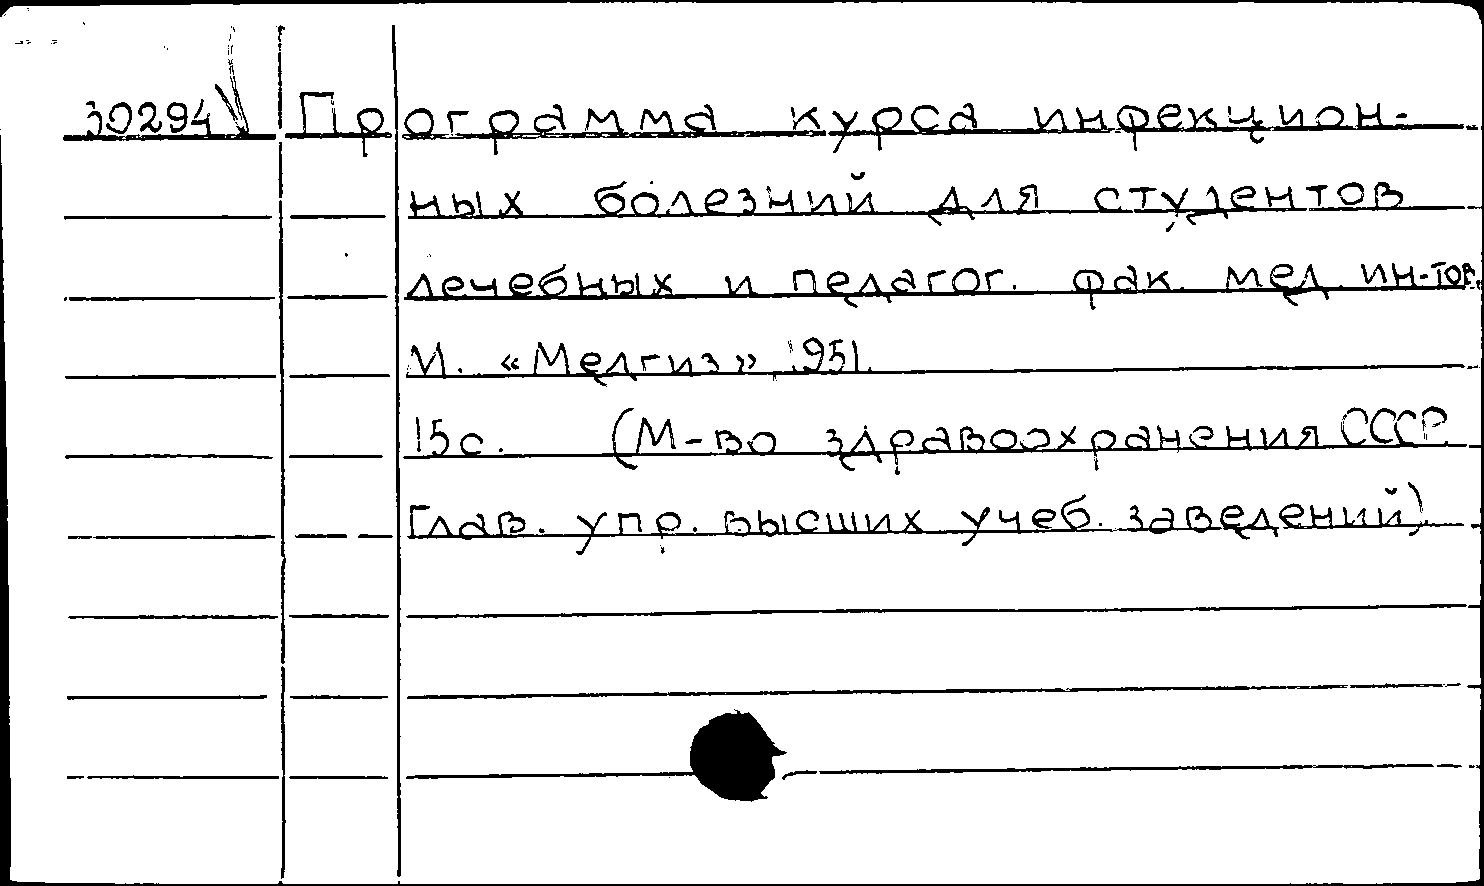 30294 Программа курса инфекцион-
ных болезний для студентов
лечебных и педагог. фак. мед. ин-тов.
М. «Медгиз», 1951.
15с. (М-во здравоохранения СССР.
Глав. упр. высших учеб. заведений)